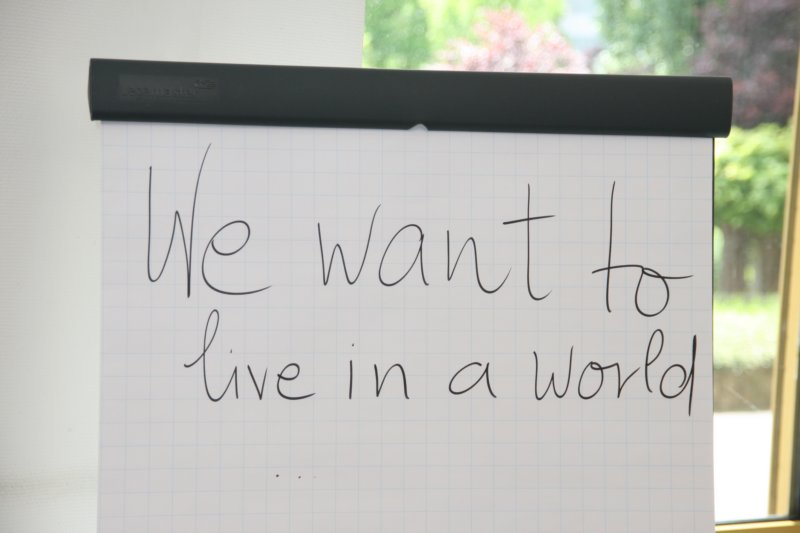 We want to
live in a world
...